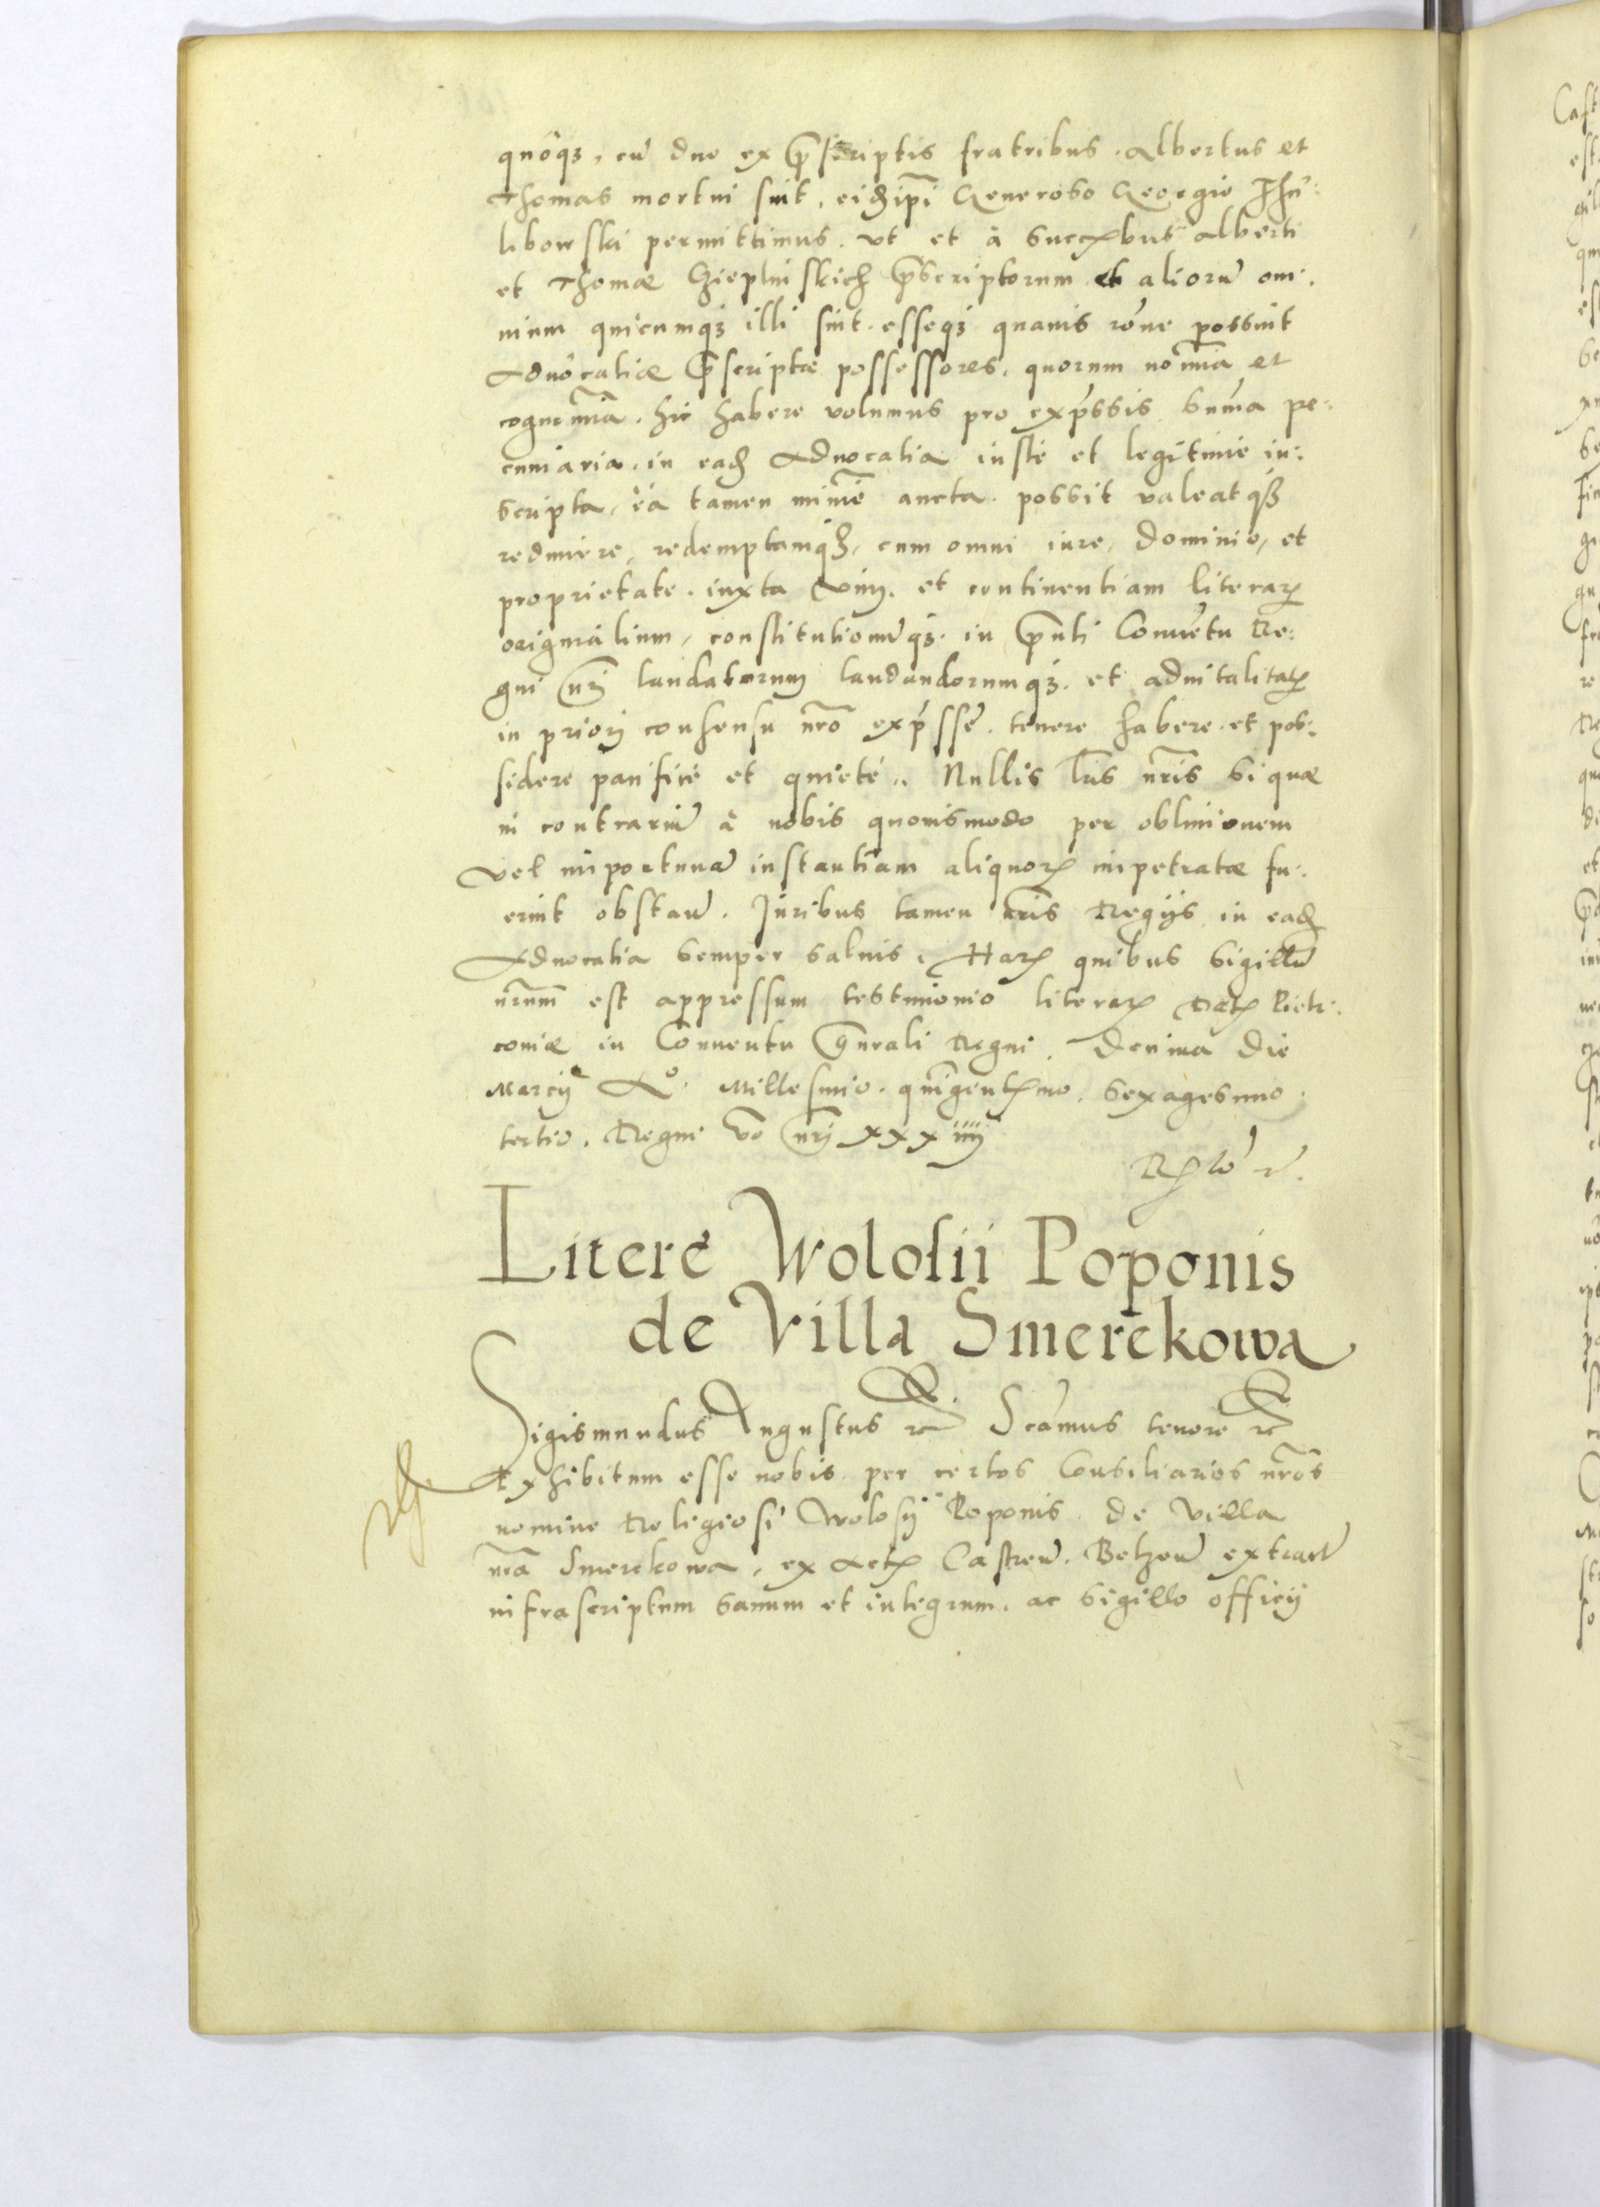 quoqz, cu duo ex pscriptis fratribus Albertus et
Thomas mortui sint, eidz ipi Generoso Georgio Chu:
libowski permittimus. vt et à succbus Alberti
et Thomæ pscriptorum et alioru om:
nium quicumqz illi sint. esseqz quavis rone possint
Advocatiæ pscriptæ possessores, quorum noma et
cognoma. hic habere volumus pro expssis suma pe:
cuniaria. in eadz Advocatia iuste et legitime in:
scripta, ea tamen minime aucta. possit valeatqz
redimere, redemptamqz, cum omni iure, dominio, et
proprietate. iuxta vim. et continentiam literaꝝ
originalium, constitutionuqz. in pnti Conventu Re:
gni nri laudatorum laudandorumqz. et advitalitatē
in priori consensu nro expsse. tenere habere. et pos:
sidere pacifice et quiete. Nullis lris nris si quæ
in contrariu à nobis quovismodo per oblivionem
vel importuna instantiam aliquoꝝ impetratæ fu:
erint obstan. Juribus tamen nris Regijs in eadz
Advocatia semper salvis. Haꝝ quibus sigillu
nrum est appressum testimonio literaꝝ Datꝝ Petr:
coviæ in Conventu gnrali Regni. Decima die
Marcij Ao. Millesimo. quingentmo. sexagesimo.
tertio. Regni vo nri xxxiiij
Litere Wolosii Poponis
de Villa Smerekowa
Sigismundus Augustus rc Scamus tenore rc
Exhibitum esse nobis per certos Consiliarios nros
nomine Religiosi Wolosij Poponis de villa
nra Smerekowa, ex Actꝝ Castren. Belzen extractu
infrascriptum sanum et integrum. ac sigillo officij